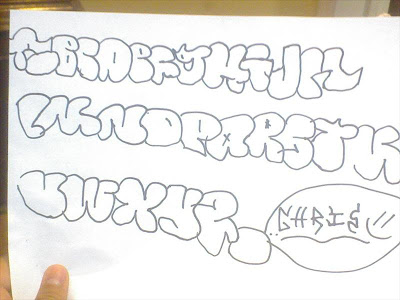 ABCDEFGHIJK
LMNOPQRSTU
VWXYZ.
CHRIS